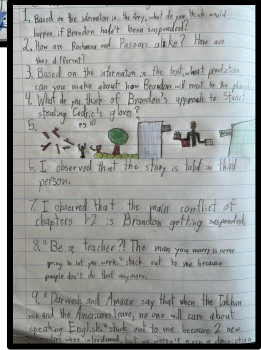 1. Based on the information in the story, what do you think would
happen if Brandon hadn't been suspended?
2. How are and Pasoon alike? How are
they different?
3. Based on the information in the text, what prediction
can you make about how Brandon will react to the
4. What do you think of Brandon's approach to Stuart
stealing Cedric's gloves?
5.
6. I observed that the story is told in third
person.
7. I observed that the main conflict of
chapters 1-2 is Brandon getting suspended.
8. "Be a teacher?! The man you marry is never
going to let you work." stuck out to me because
people don't do that anymore.
9. Darwesh and Amaan say that when the Taliban
win and the Americans leave, no one will care about
speaking English." stuck out to me because 2 new
were introduced, but